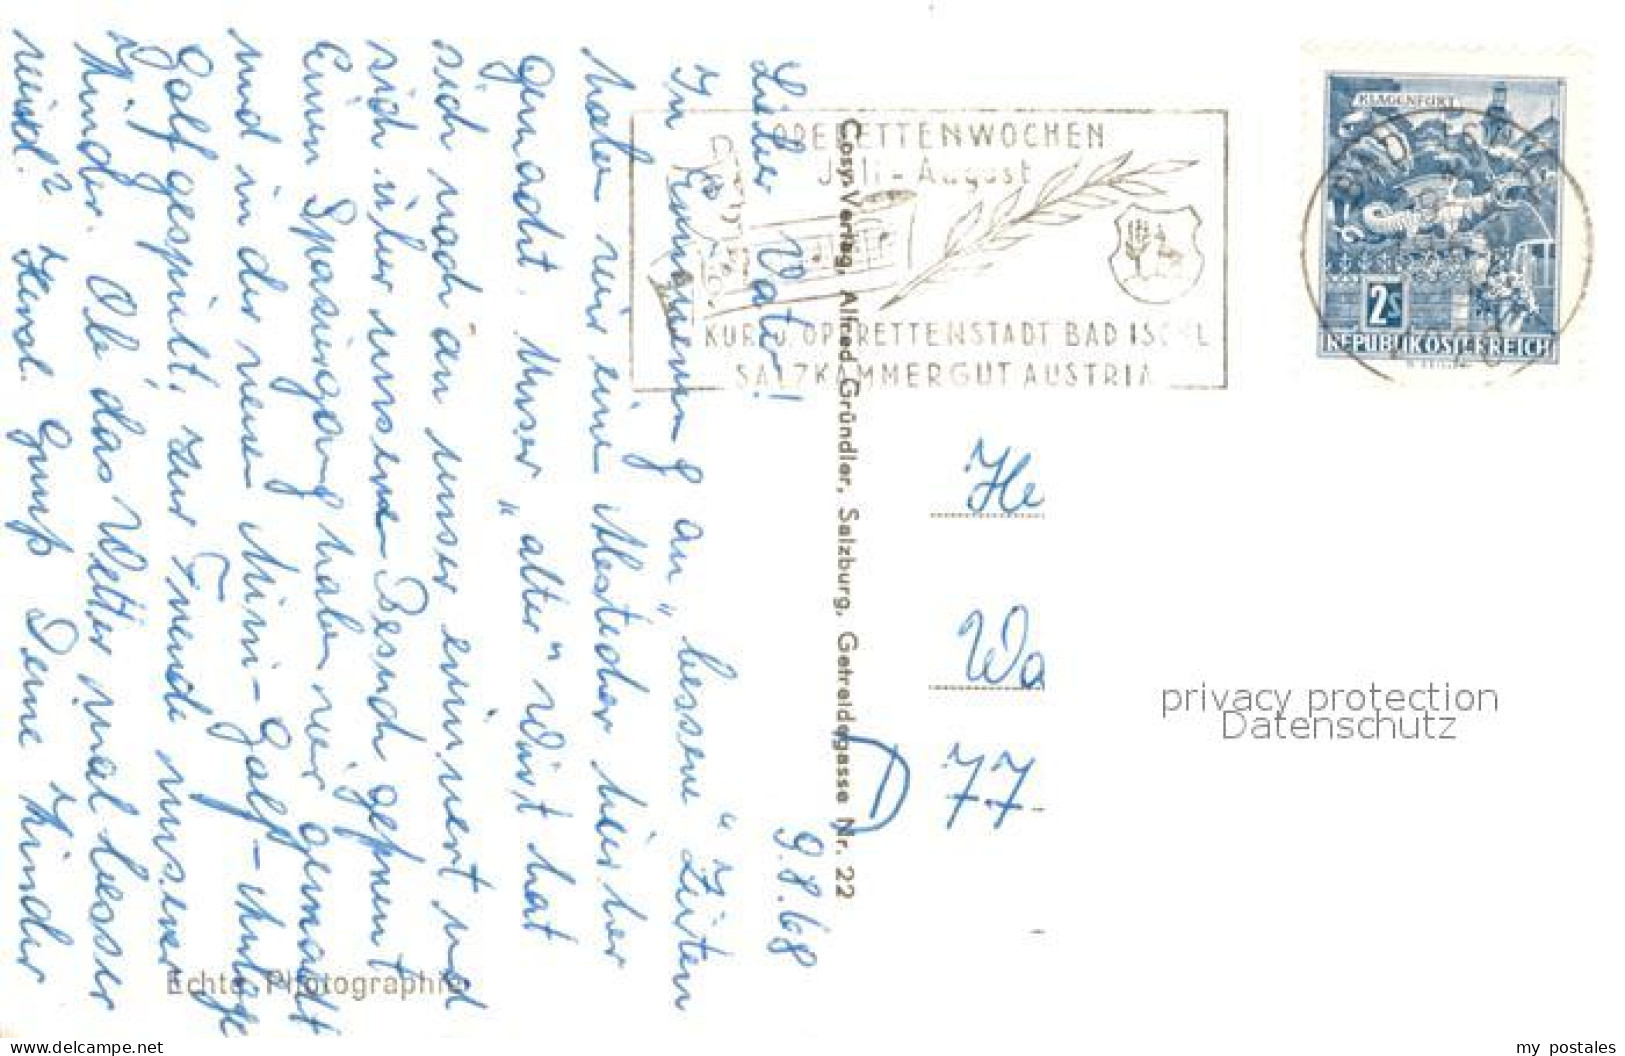 9.8.68
Lieber Vater!
In Erinnerung an „bessere“ Zeiten
haben wir einen Abstecher hierher
gemacht. Unser „alter“ Wirt hat
sich noch an unser erinnert und
sich über unseren Besuch gefreut
Einen Spaziergang haben wir gemacht
und in der neuen Mini-Golf-Anlage
Golf gespielt, zur Freude unserer
Kinder. Ob das Wetter mal besser
wird? Herzl. Gruß Deine Kinder
Cosy-Verlag, Alfred Gründler, Salzburg, Getreidegasse Nr. 22
Echte Photographie
OPERETTENWOCHEN
Juli - August
KUR- U. OPERETTENSTADT BAD ISCHL
SALZKAMMERGUT AUSTRIA
KLAGENFURT
2S
REPUBLIK ÖSTERREICH
He
Wa
D 77
privacy protection
Datenschutz
www.delcampe.net
my_postales